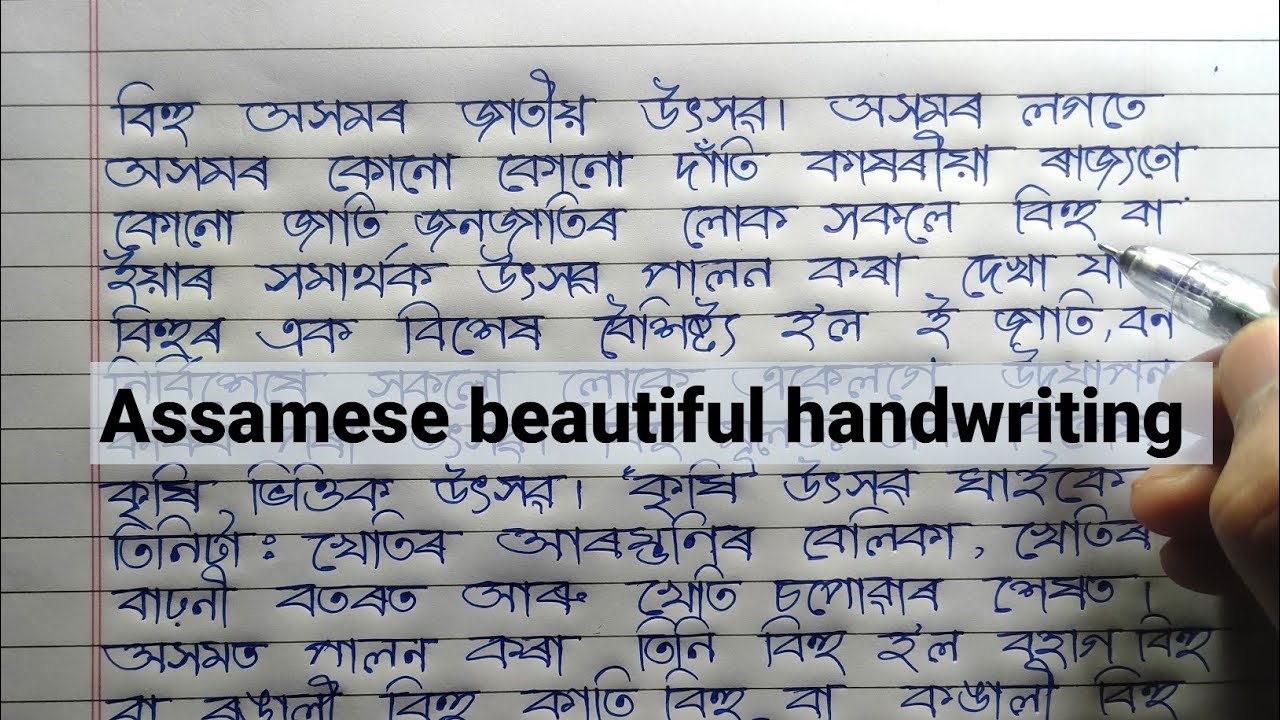 বিহু অসমৰ জাতীয় উৎসৱ। অসমৰ লগতে
অসমৰ কোনো কোনো দাঁতি কাষৰীয়া ৰাজ্যতো
কোনো জাতি জনজাতিৰ লোক সকলে বিহু বা
ইয়াৰ সমাৰ্থক উৎসৱ পালন কৰা দেখা যা
বিহুৰ এক বিশেষ বৈশিষ্ট্য হ'ল ই জাতি, বৰ্ন
নিৰ্বিশেষে সকলো লোকে একেলগে উদযাপন
Assamese beautiful handwriting
কৃষি ভিত্তিক উৎসৱ। কৃষি উৎসৱ ঘাইকৈ
তিনিটা: খেতিৰ আৰম্ভনিৰ বেলিকা, খেতিৰ
বাঢ়নী বতৰত আৰু খেতি চপোৱাৰ শেষত।
অসমত পালন কৰা তিনি বিহু হ'ল ব'হাগ বিহু
বা ৰঙালী বিহু কাতি বিহু বা কঙালী বিহু